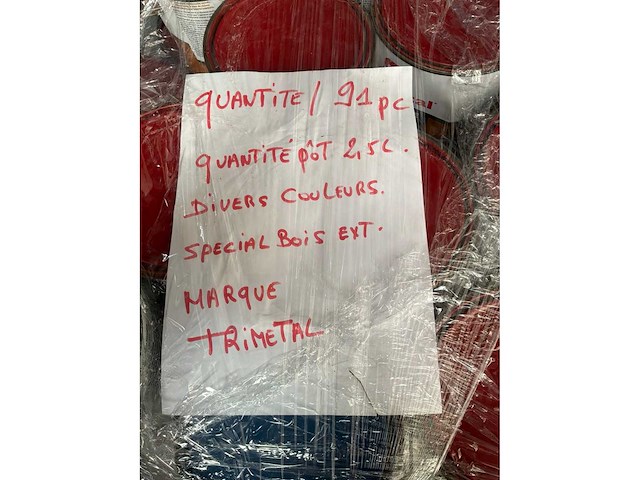 QUANTITE / 91 pc
QUANTITÉ PÔT 2,5L.
DIVERS COULEURS.
SPECIAL BOIS EXT.
MARQUE
TRIMETAL